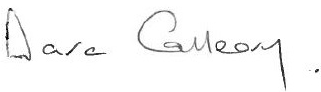 Dara Calleary.